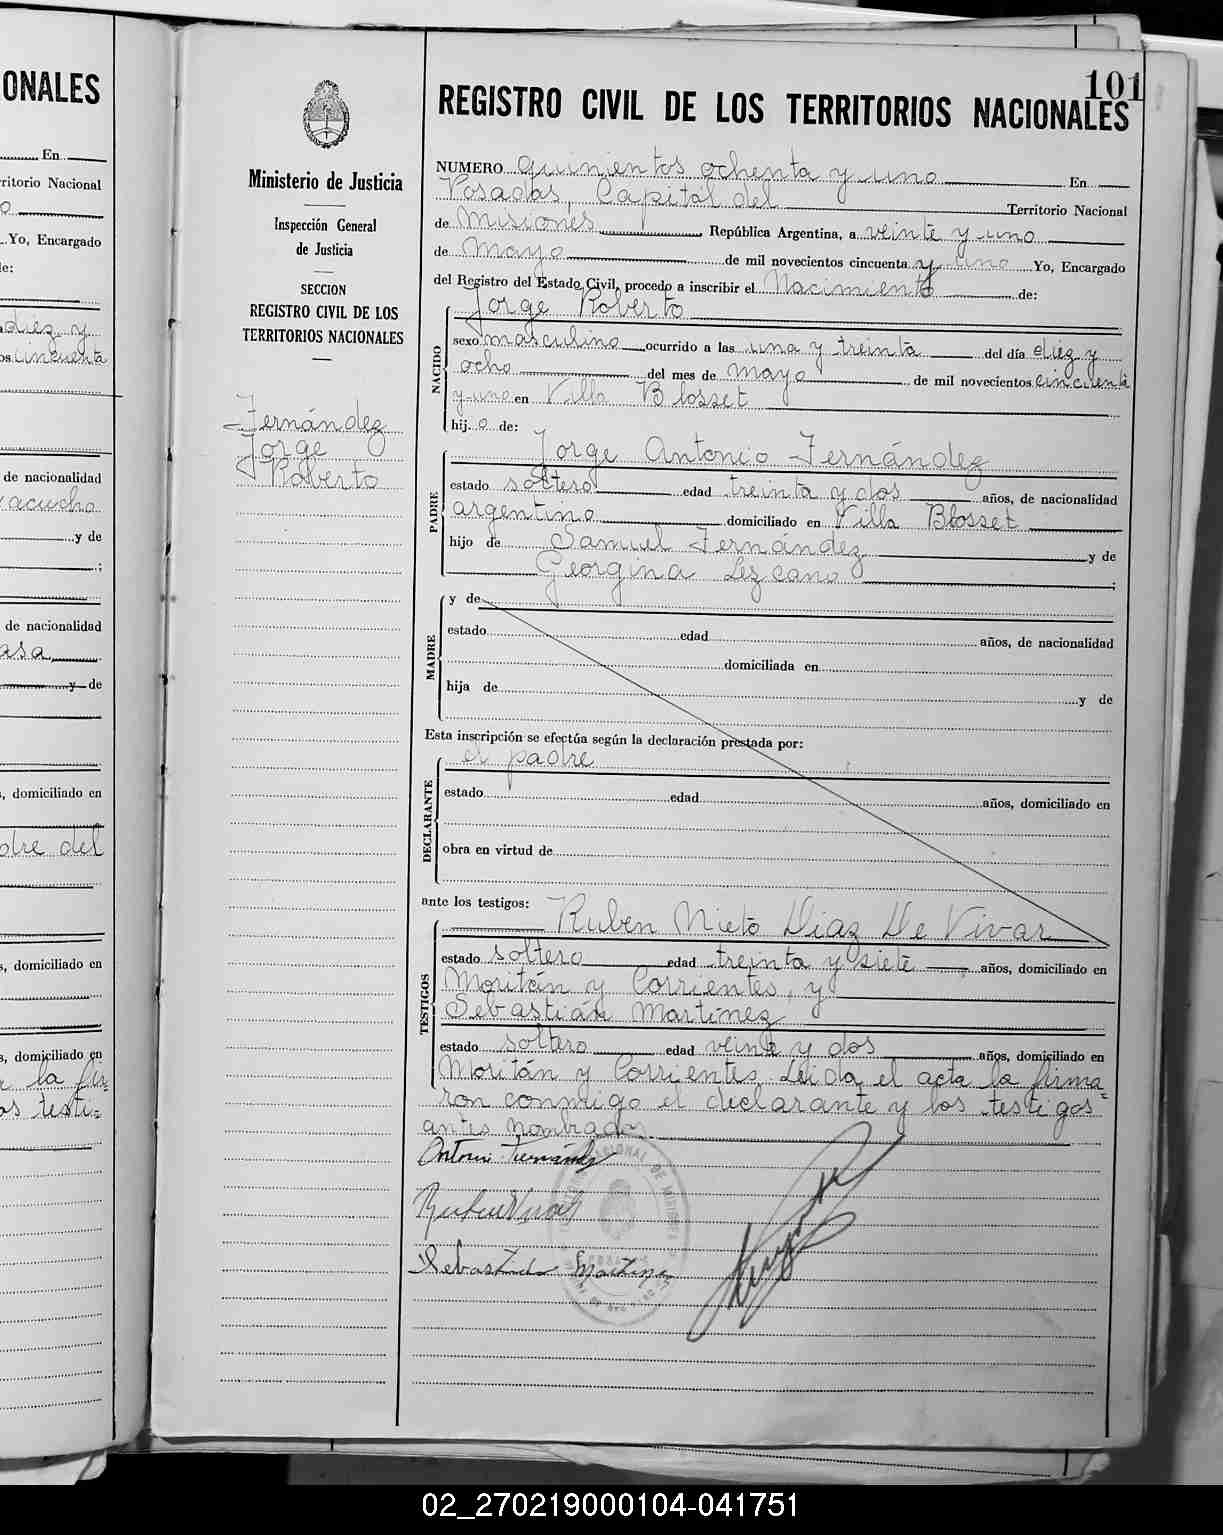 ONALES
En
ritorio Nacional
o
Yo, Encargado
diez y
cincuenta
de nacionalidad
y de
;
de nacionalidad
y de
, domiciliado en
dre del
, domiciliado en
, domiciliado en
la fir
os testi=
101
REGISTRO CIVIL DE LOS TERRITORIOS NACIONALES
Ministerio de Justicia
Inspección General
de Justicia
SECCION
REGISTRO CIVIL DE LOS
TERRITORIOS NACIONALES
Fernández
Jorge
Roberto
NUMERO quinientos ochenta y uno En
Posadas, Capital del Territorio Nacional
de Misiones República Argentina, a veinte y uno
de Mayo de mil novecientos cincuenta y uno Yo, Encargado
del Registro del Estado Civil, procedo a inscribir el Nacimiento de:
NACIDO
Jorge Roberto
sexo masculino ocurrido a las una y treinta del día diez y
ocho del mes de mayo de mil novecientos cincuenta
y uno en Villa Blosset
hij o de:
PADRE
Jorge Antonio Fernández
estado soltero edad treinta y dos años, de nacionalidad
argentino domiciliado en Villa Blosset
hijo de Samuel Fernández y de
Georgina Lezcano ;
MADRE
y de
estado edad años, de nacionalidad
domiciliada en
hija de y de
Esta inscripción se efectúa según la declaración prestada por:
el padre
DECLARANTE
estado edad años, domiciliado en
obra en virtud de
ante los testigos:
TESTIGOS
Ruben Nieto Diaz De Vivar
estado soltero edad treinta y siete años, domiciliado en
Moritán y Corrientes, y
Sebastián Martinez
estado soltero edad veinte y dos años, domiciliado en
Moritán y Corrientes. Leida el acta la firma=
ron conmigo el declarante y los testigos
antes nombrados
Antonio Fernández
Sebastián Martinez
02_270219000104-041751